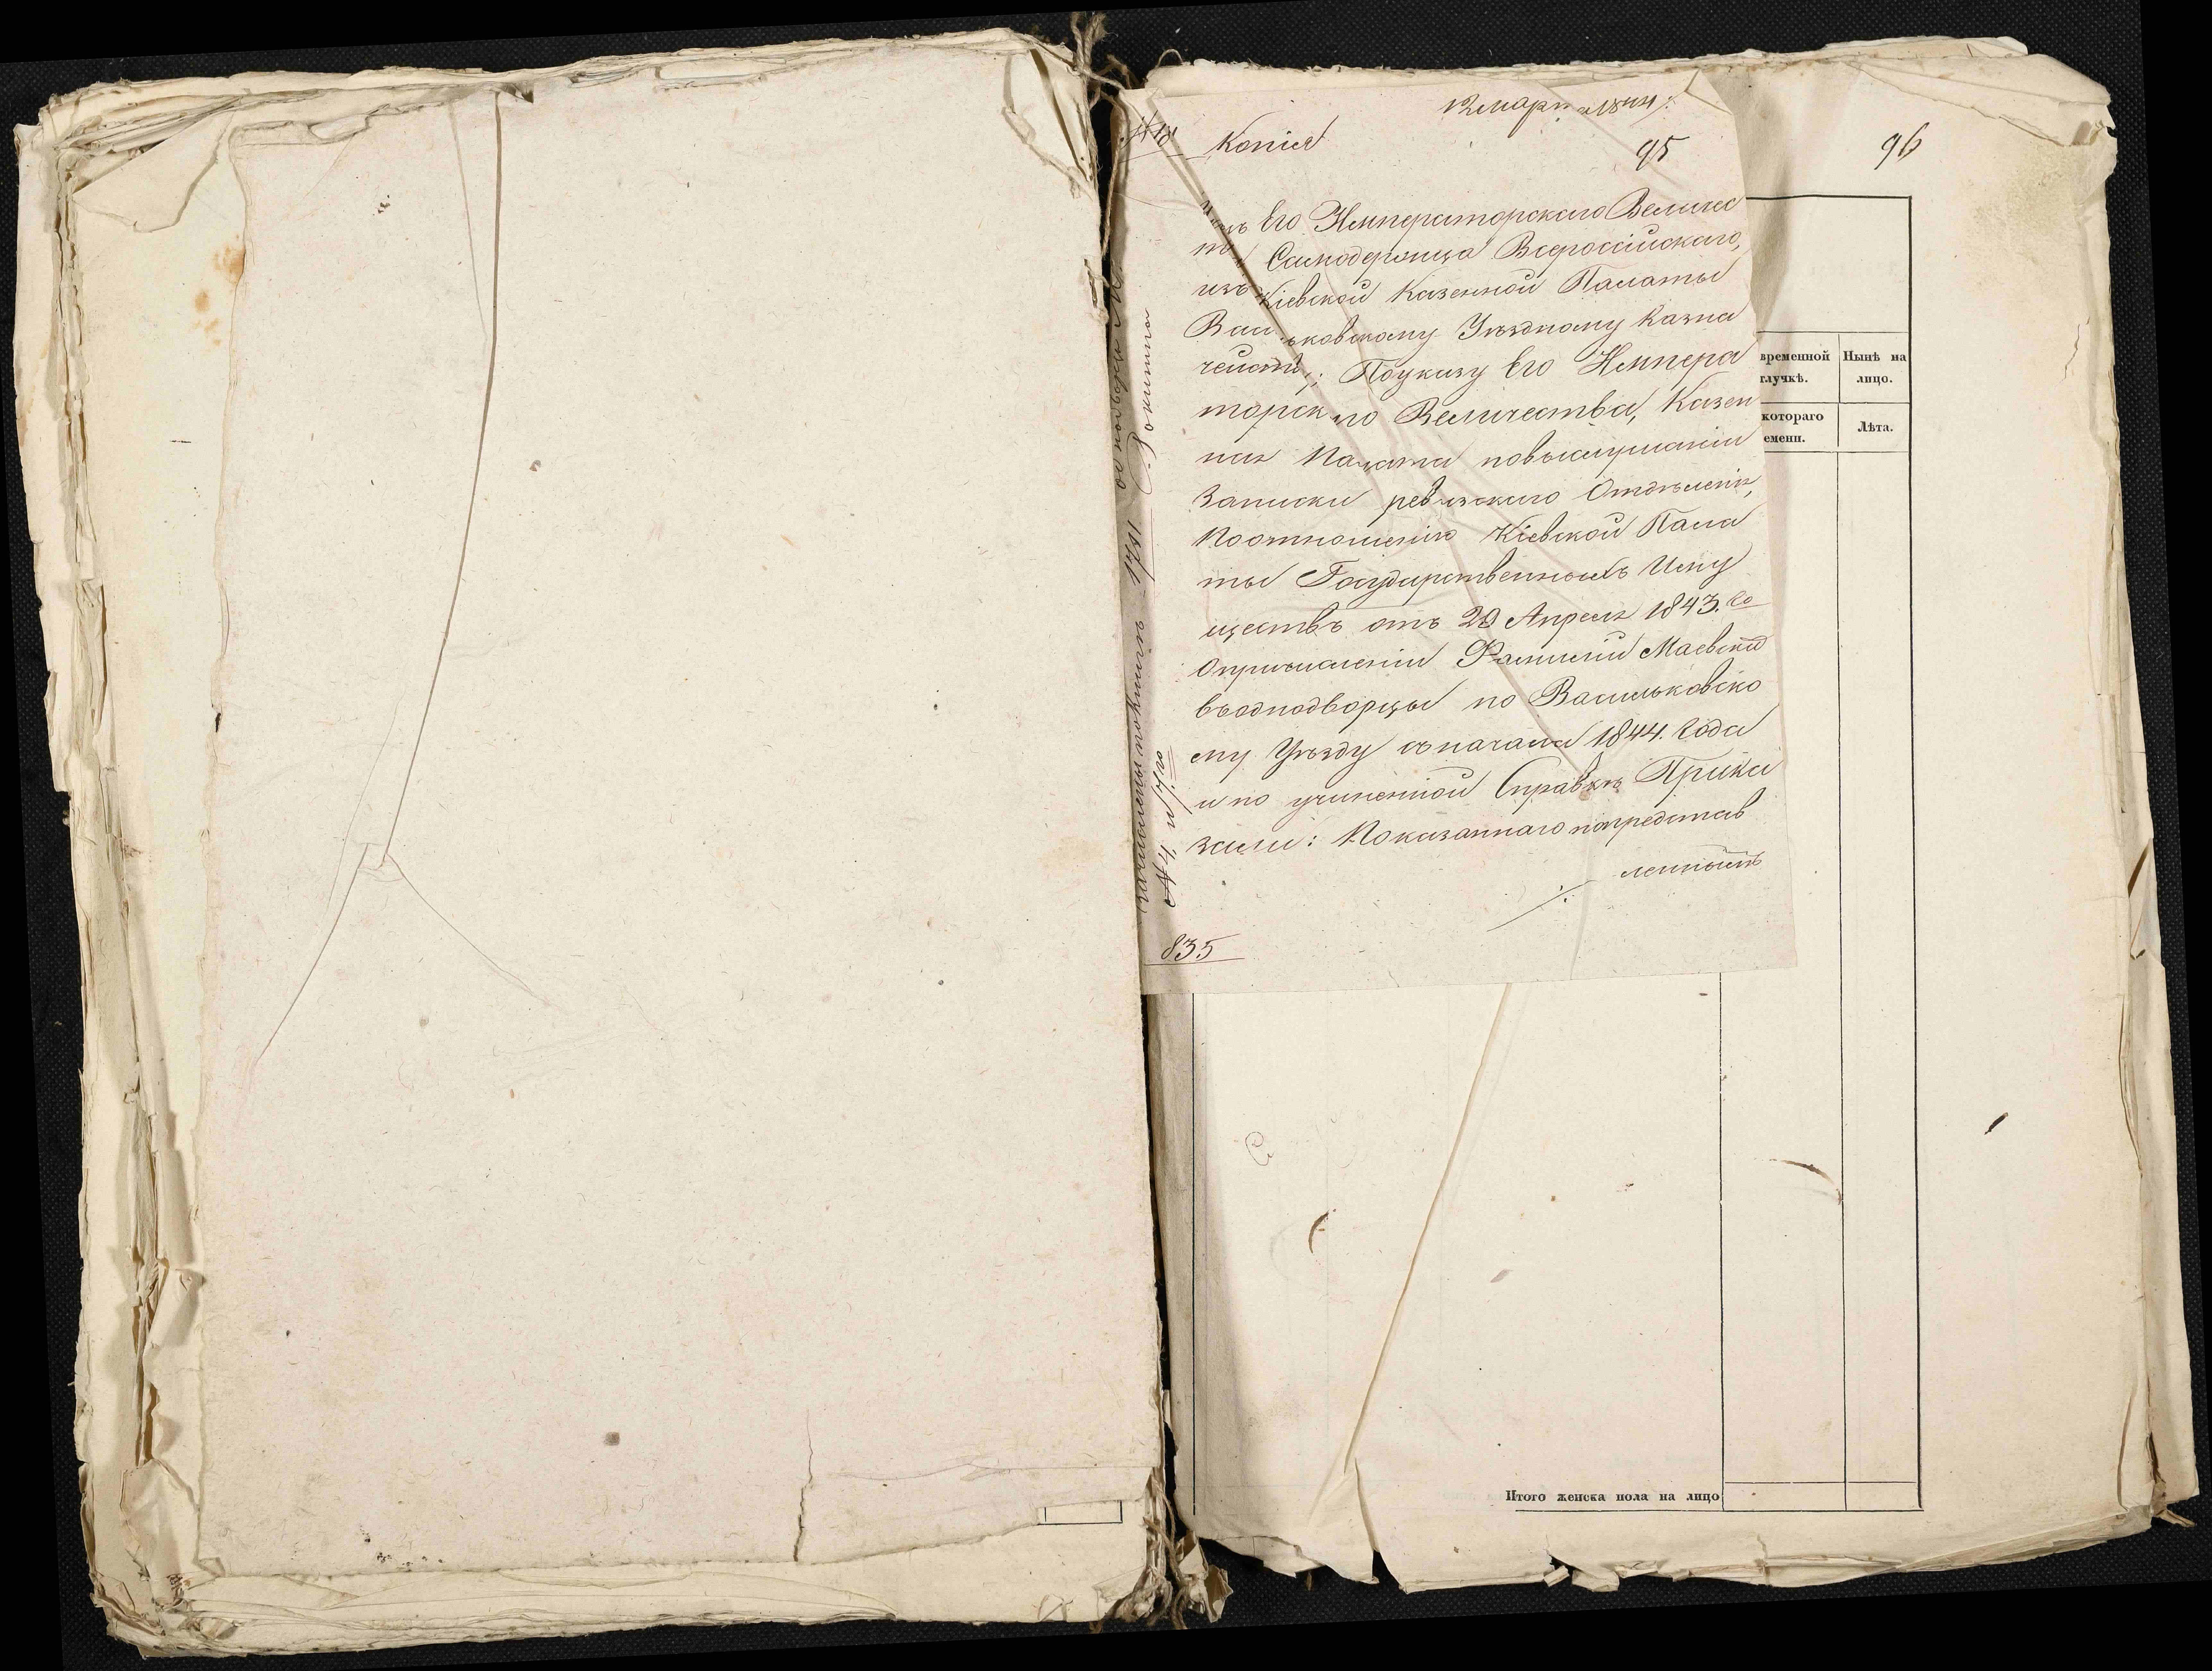 12 марта 1844 г.
№ 18 Копія
95
96
Указъ Его Императорскаго Величес
тва Самодержца Всероссійскаго,
изъ Кіевской Казенной Палаты
Васильковскому Уѣздному Казна
чейству; Поуказу Его Импера
торскаго Величества, Казен
ная Палата повыслушаніи
Записки ревизскаго Отдѣленія,
Поотношенію Кіевской Пала
ты Государственныхъ Иму
ществъ отъ 20 Апреля 1843. го
Опричисленіи Фамилій Маевскій
въоднодворцы по Васильковско
му Уѣзду съначала 1844. Года
и по учиненной Справкѣ Прика
зали: Показаннаго попредстав
леннымъ
835
временной
Нынѣ на
лучкѣ.
лицо.
котораго
емени.
Лѣта.
Итого женска пола на лицо